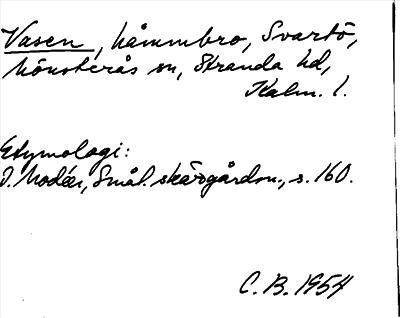 Vasen, håmmbro, Svartö,
Mönsterås sn, Stranda hd,
Kalm. l.
Etymologi:
I. Modéer, Smål. skärgårdsn., s. 160.
C. B. 1954